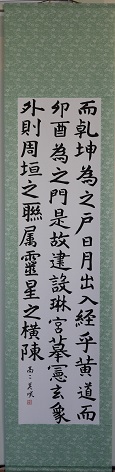 而乾坤為之戸日月出入經乎黄道而
卯酉為之門是故建設琳宮摹憲玄象
外則周垣之聯属靈星之横陳